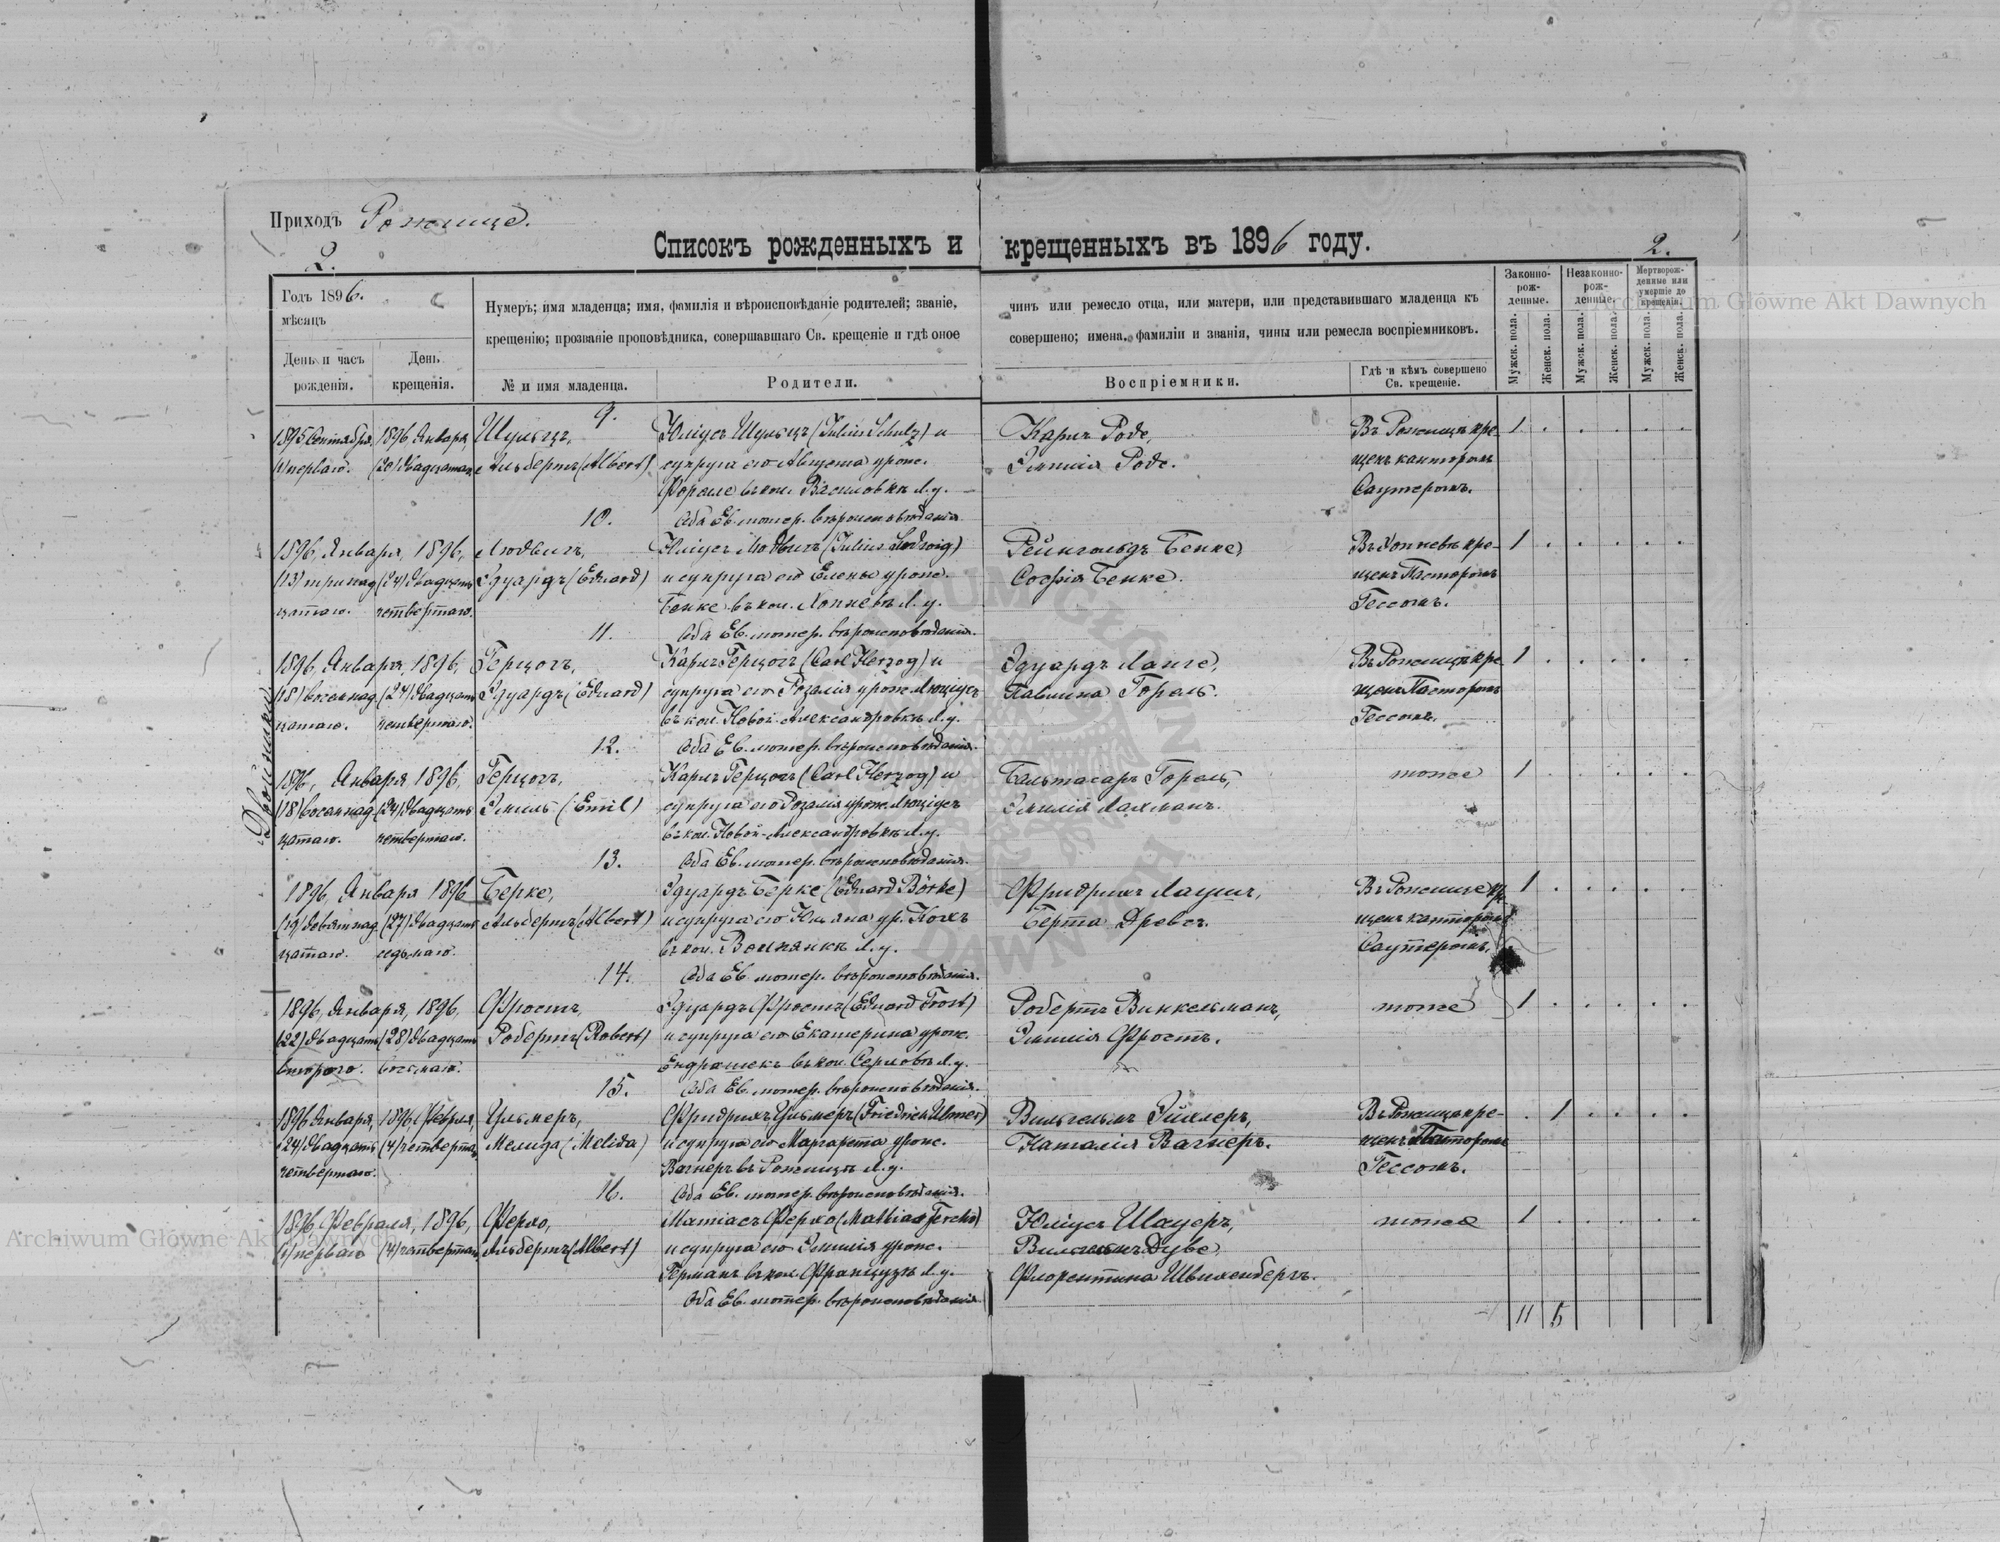 Приходъ Рожище.
2.
Списокъ рожденныхъ и крещенныхъ въ 1896 году.
2.
Годъ 1896.
мѣсяцъ
День и часъ рожденія.
День крещенія.
Нумеръ; имя младенца; имя, фамилія и вѣроисповѣданіе родителей; званіе, чинъ или ремесло отца, или матери, или представившаго младенца къ
крещенію; прозваніе проповѣдника, совершавшаго Св. крещеніе и гдѣ оное совершено; имена, фамиліи и званія, чины или ремесла воспріемниковъ.
№ и имя младенца.
Родители.
Воспріемники.
Гдѣ и кѣмъ совершено Св. крещеніе.
Законно-рож-денные.
Незаконно-рож-денные.
Мертворож-денные или умершіе до крещенія.
Мужск. пола.
Женск. пола.
Мужск. пола.
Женск. пола.
Мужск. пола.
Женск. пола.
9.
1895 Сентября 1896 Января Шульцъ, Юліусъ Шульцъ (Julius Schulz) и Карлъ Роде, Въ Рожищѣ кре- 1
(1) перваго. (20) двадцатаго Альбертъ (Albert) супруга его Августа урож. Эмилія Роде. щенъ канторомъ
въ кол. Василовкѣ Л. у. Саутеромъ.
10. Оба Ев. лютер. вѣроисповѣданія
1896, Января, 1896, Людвигъ, Юліусъ Людвигъ (Julius Ludwig) Рейнгольдъ Бенке, Въ Копчевѣ кре- 1
(13) тринад (24) двадцать Эдуардъ (Eduard) и супруга его Елена урож. Софія Бенке. щенъ Пасторомъ
цатаго. четвертаго. Бенке въ кол. Копчевѣ Л. у. Гессомъ.
11. Оба Ев. лютер. вѣроисповѣданія.
1896, Января, 1896, Герцогъ, Карлъ Герцогъ (Carl Herzog) и Эдуардъ Ланге, Въ Рожищѣ кре 1
(18) восемнад (24) двадцать Эдуардъ (Eduard) супруга его Розалія урож. Павлина Горель. щенъ Пасторомъ
цатаго. четвертаго. въ кол. Новой-Александровкѣ Л. у. Гессомъ.
Двойники
12. Оба Ев. лютер. вѣроисповѣданія.
1896, Января 1896, Герцогъ, Карлъ Герцогъ (Carl Herzog) и Бальтасаръ Горель, тоже 1
(18) восемнад (24) двадцать Эмиль (Emil) супруга его Розалія урож. Эмилія Лахманъ.
цатаго. четвертаго. въ кол. Новой-Александровкѣ Л. у.
13. Оба Ев. лютер. вѣроисповѣданія.
1896, Января 1896 Берке, Эдуардъ Берке (Eduard Börke) Фридрихъ Лаушъ, Въ Рожище кре 1
(19) девятнад (27) двадцать Альбертъ (Albert) и супруга его Юліяна ур. Кохъ Берта Древсъ. щенъ канторомъ
цатаго. седьмаго. въ кол. Волнянкѣ Л. у. Саутеромъ.
14. Оба Ев. лютер. вѣроисповѣданія.
1896, Января, 1896, Фростъ, Эдуардъ Фростъ (Eduard Frost) Робертъ Винкельманъ, тоже 1
(22) двадцать (28) двадцать Робертъ (Robert) и супруга его Екатерина урож. Эмилія Фростъ.
втораго. восьмаго. Ендрашекъ въ кол. Л. у.
15. Оба Ев. лютер. вѣроисповѣданія.
1896 Января, 1896, Февраля, Ульмеръ, Фридрихъ Ульмеръ (Friedrich Ulmer) Вильгельмъ Эйхлеръ, Въ Рожищѣ кре- 1
(24) двадцать (4) четвертаго Мелида (Melida) и супруга его Маргарета урож. Наталія Вагнеръ. щенъ Пасторомъ
четвертаго. Вагнеръ въ Рожищѣ Л. у. Гессомъ.
16. Оба Ев. лютер. вѣроисповѣданія.
1896 Февраля, 1896, Ферхо, Матіасъ Ферхо (Mathias Fercho) Юліусъ Шауеръ, тоже 1
(1) перваго (4) четвертаго Альбертъ (Albert) и супруга его Эмилія урож. Дубе,
Германъ въ кол. Л. у. Флорентина Швихенбергъ.
Оба Ев. лютер. вѣроисповѣданія
11 5
Archiwum Główne Akt Dawnych
Archiwum Główne Akt Dawnych